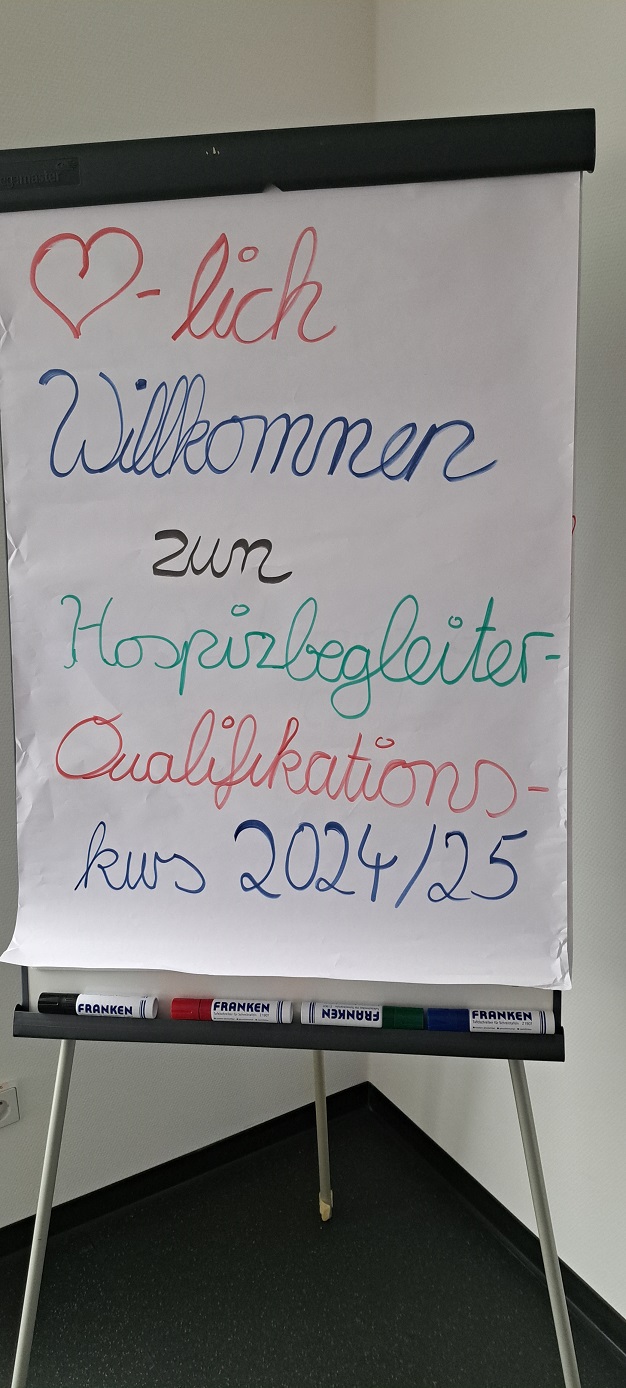 ♡-lich
Willkommen
zum
Hospizbegleiter-
Qualifikations-
kurs 2024/25
FRANKEN
FRANKEN
FRANKEN
FRANKEN